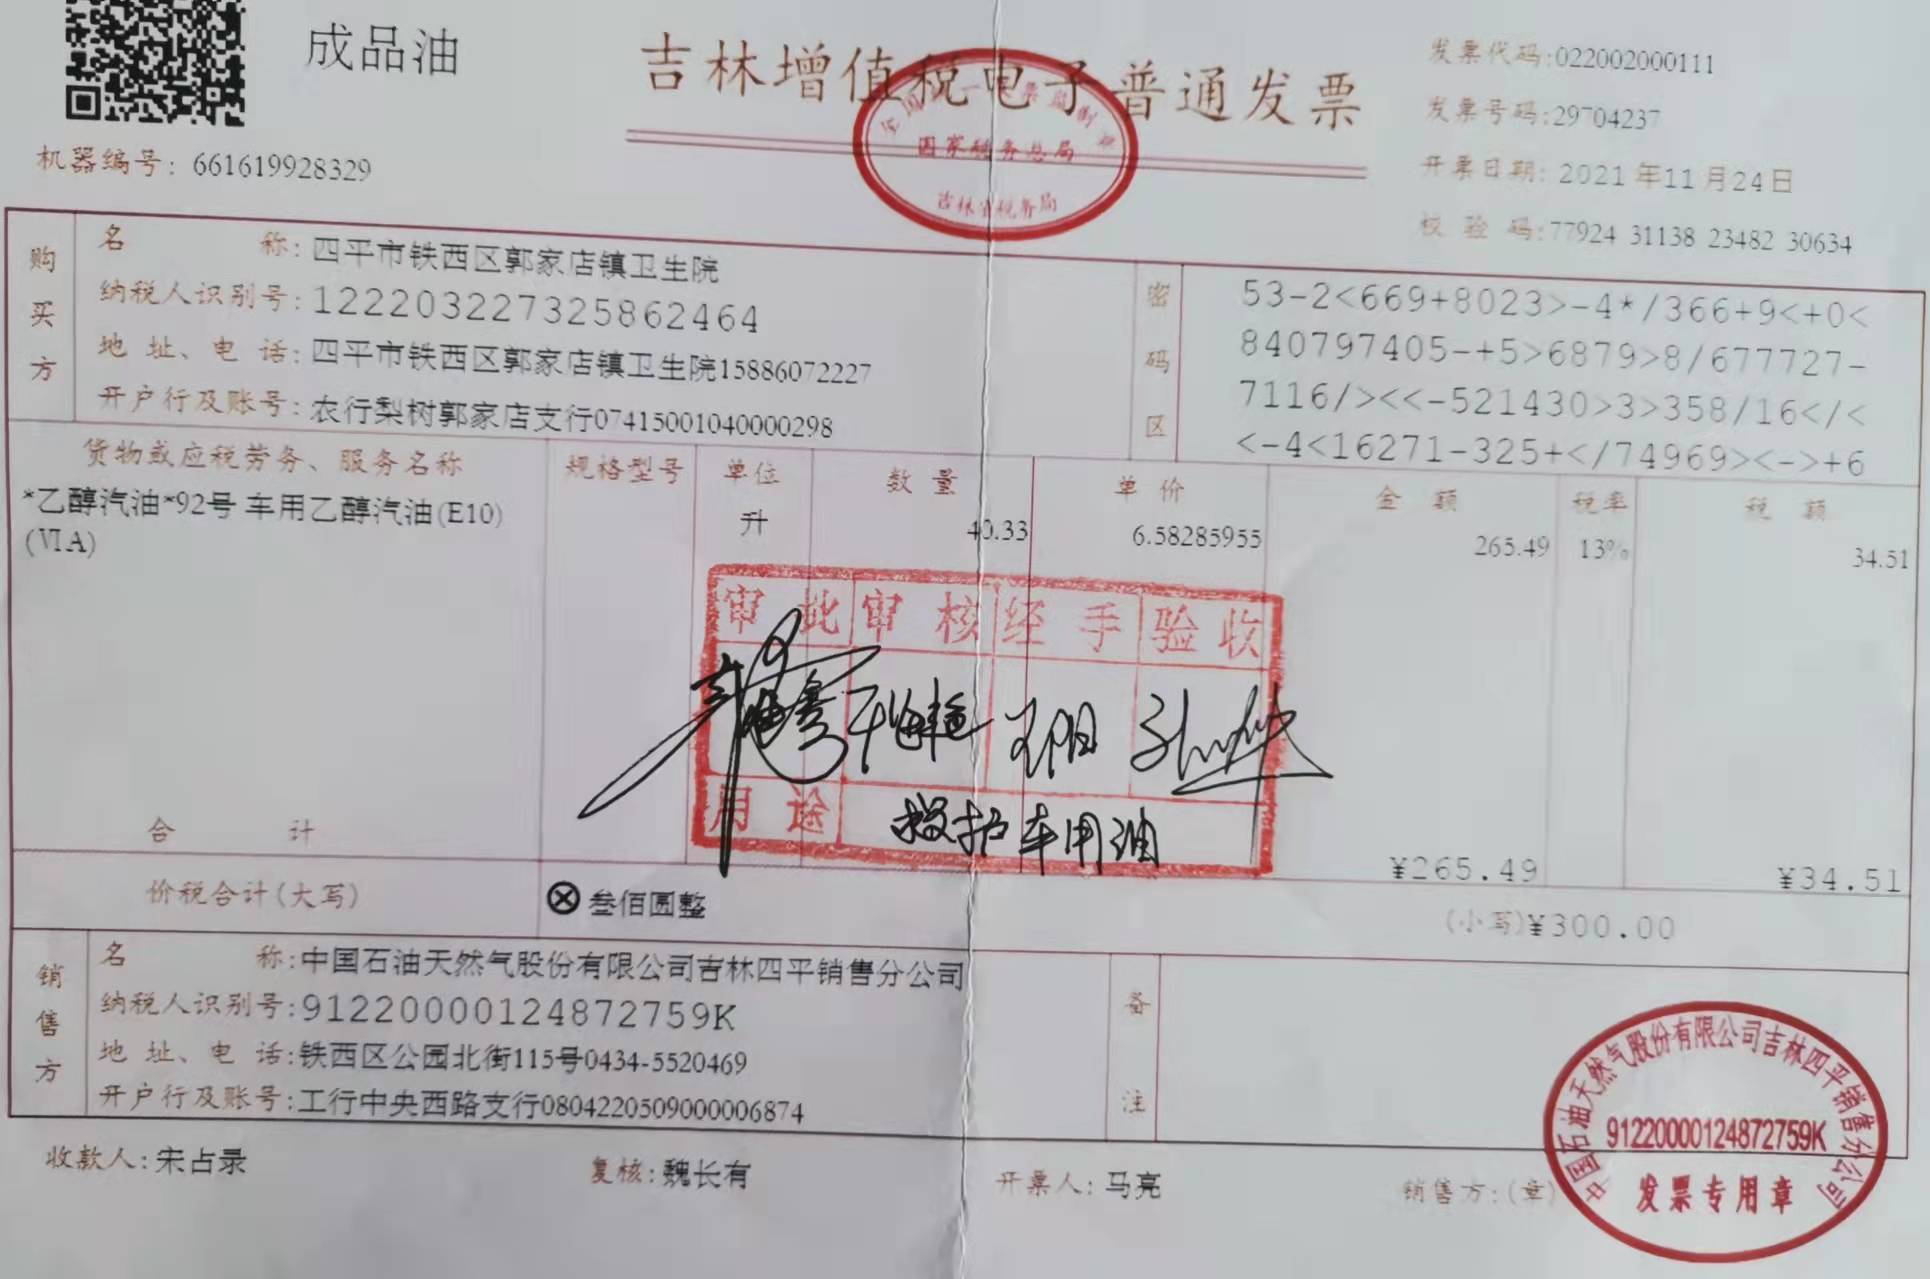 成品油
吉林增值税电子普通发票
发票代码:022002000111
发票号码:29704237
开票日期: 2021年11月24日
校 验 码:77924 31138 23482 30634
机器编号: 661619928329
国家税务总局
吉林省税务局
购买方
名 称: 四平市铁西区郭家店镇卫生院
纳税人识别号: 122203227325862464
地 址、电 话: 四平市铁西区郭家店镇卫生院15886072227
开户行及账号: 农行梨树郭家店支行07415001040000298
密码区
53-2<669+8023>-4*/366+9<+0<
840797405-+5>6879>8/677727-
7116/><<-521430>3>358/16</<
<-4<16271-325+</74969><->+6
货物或应税劳务、服务名称 规格型号 单位 数 量 单 价 金 额 税率 税 额
*乙醇汽油*92号 车用乙醇汽油(E10) 升 40.33 6.58285955 265.49 13% 34.51
(ⅥA)
审 批 审 核 经 手 验 收
用 途 救护车用油
合 计 ¥265.49 ¥34.51
价税合计(大写) ⊗叁佰圆整 (小写)¥300.00
销售方
名 称: 中国石油天然气股份有限公司吉林四平销售分公司
纳税人识别号: 91220000124872759K
地 址、电 话: 铁西区公园北街115号0434-5520469
开户行及账号: 工行中央西路支行0804220509000006874
备注
收款人: 宋占录 复核: 魏长有 开票人: 马亮 销售方:(章)
中国石油天然气股份有限公司吉林四平销售分公司
91220000124872759K
发票专用章